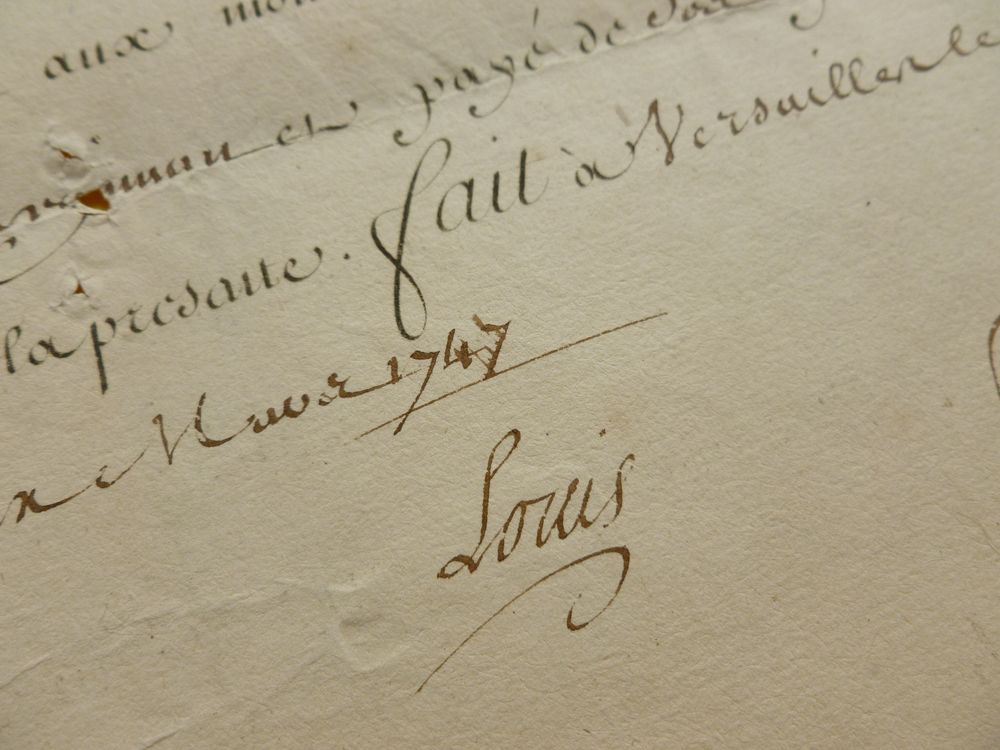 aux
et payé de
la presante. fait à Versailles le
Mars 1747
Louis